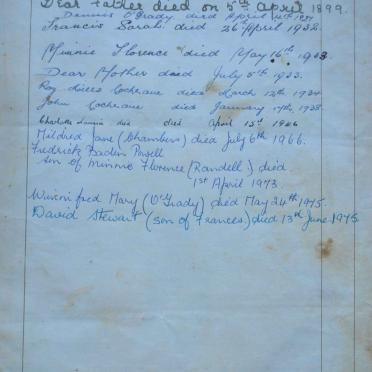 Dear Father died on 5th April 1899.
Dennis O'Grady died April 4th
Francis Sarah died 26th April 1932.
Minnie Florence died May 16th
Dear Mother died July 5th 1933.
Roy Cochrane died March 12th 1934
John Cochrane died January 17th, 1938.
Charlotte died April 15th 1966
Mildred Jane (Chambers) died July 6th 1966.
Fredrick Baden Powell
son of Minnie Florence (Randell) died
1st April 1973
Winnifred Mary (O'Grady) died May 24th 1975.
David Stewart (son of Frances) died 13th June 1975